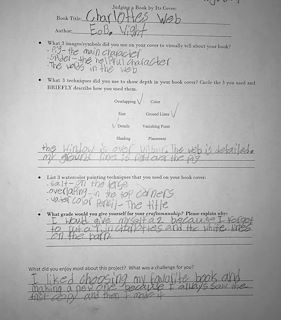 Judging a Book by Its Cover
Book Title: Charlottes Web
Author: E.B. Whight
What 3 images/symbols did you use on your cover to visually tell about your book?
Pig- the main character
Spider- the helpful character
The web in the web
What 3 techniques did you use to show depth in your book cover? Circle the 3 you used and
BRIEFLY describe how you used them.
Overlapping Color
Size Ground Lines
Details Vanishing Point
Shading Placement
the window is over wilbur. The web is detailed.
my ground lines is right over the pig
List 3 watercolor painting techniques that you used on your book cover:
salt- on the
overlaping- in the top corners
water color pencil- The title
What grade would you give yourself for your craftsmanship? Please explain why:
I would give myself a 2 because I forgot
to put a in charlottes and the white lines
on the barn.
What did you enjoy most about this project? What was a challenge for you?
I liked choosing my favorite book and
making a new one because I always saw the
copy and then I made it